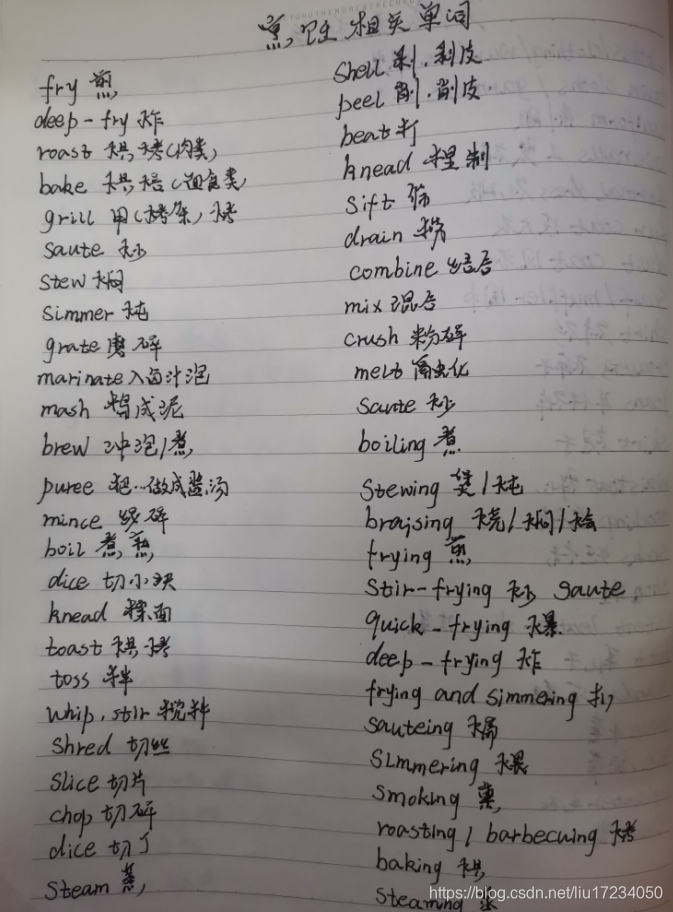 烹饪相关单词
fry 煎
deep-fry 炸
roast 烘烤(肉类)
bake 烘焙(面食类)
grill 用(烤架)烤
saute 炒
stew 焖
simmer 炖
grate 磨碎
marinate 入卤汁泡
mash 捣成泥
brew 冲泡/煮
puree 把…做成酱汤
mince 绞碎
boil 煮熟
dice 切小块
knead 揉面
toast 烘烤
toss 拌
whip, stir 搅拌
shred 切丝
slice 切片
chop 切碎
dice 切丁
steam 蒸
shell 剥,剥皮
peel 削,削皮
beat 打
knead 捏制
sift 筛
drain 捞
combine 结合
mix 混合
crush 粉碎
melt 融化
saute 炒
boiling 煮
stewing 煲/炖
braising 烧/焖/烩
frying 煎
stir-frying 炒 saute
quick-frying 爆
deep-frying 炸
frying and simmering 扒
sauteing 煸
simmering 煨
smoking 熏
roasting/barbecuing 烤
baking 烘
steaming 蒸
https://blog.csdn.net/liu17234050